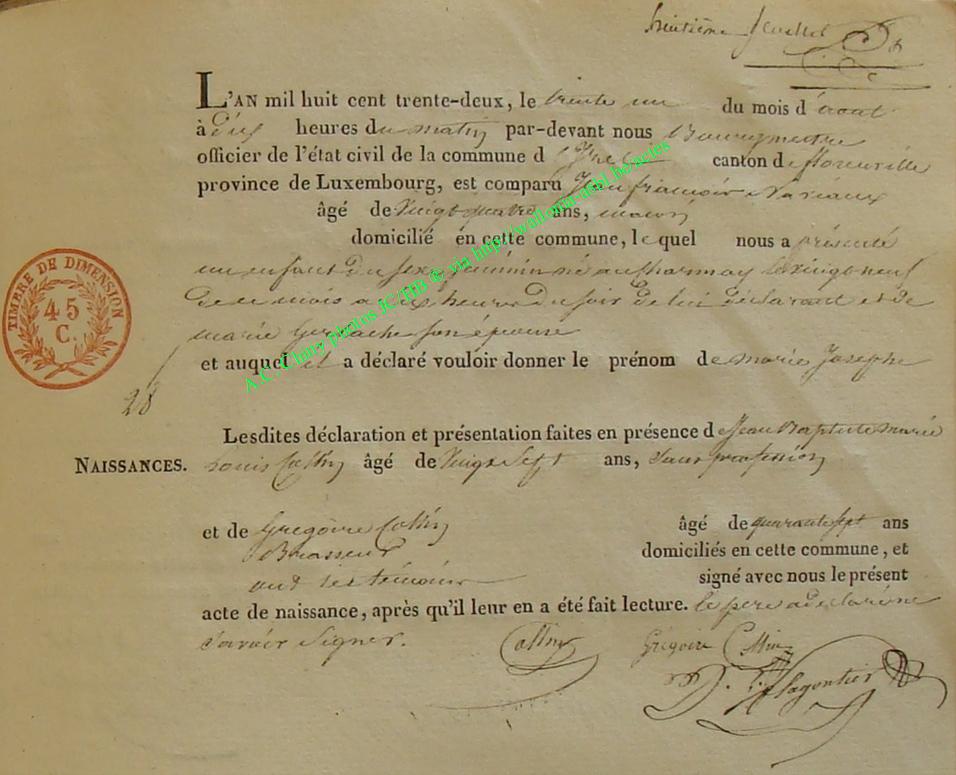 huitième feuillet
L'AN mil huit cent trente-deux, le trente un du mois d'aout
à dix heures du matin par-devant nous Bourgmestre
officier de l'état civil de la commune d canton de florenville
province de Luxembourg, est comparu Jean françois
âgé de Vingt quatre ans, maçon
domicilié en cette commune, lequel nous a présenté
un enfant du sexe féminin né au Charmoy le vingt neuf
de ce mois a heures du soir de lui déclarant et de
marie son épouse
et auquel il a déclaré vouloir donner le prénom de marie Josephe
28
Lesdites déclaration et présentation faites en présence de Jean Baptiste marie
NAISSANCES. Louis Collin âgé de Vingt Sept ans, Sans profession
et de Grégoire Collin âgé de quarante sept ans
Brasseur domiciliés en cette commune, et
ont les témoins signé avec nous le présent
acte de naissance, après qu'il leur en a été fait lecture. le pere a declaré ne
savoir signer. Collin Grégoire Collin
TIMBRE DE DIMENSION
45
C.
A.C. Chiny photos JC/HB © via http://wallonia-asbl.be/actes